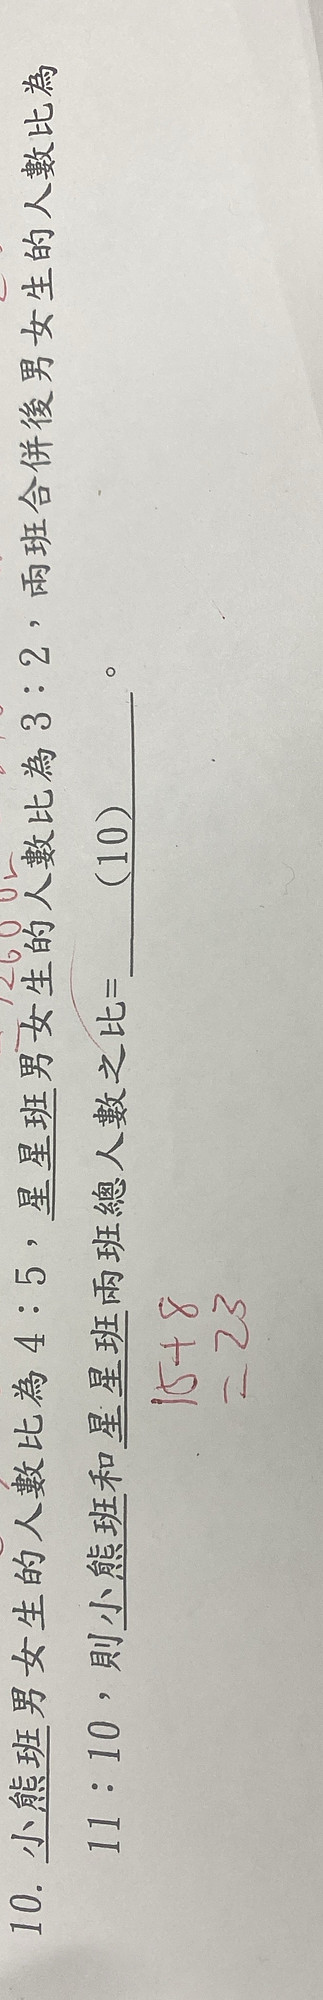 10. 小熊班男女生的人數比為 4：5，星星班男女生的人數比為 3：2，兩班合併後男女生的人數比為
11：10，則小熊班和星星班兩班總人數之比=　(10)　。
15+8
=23